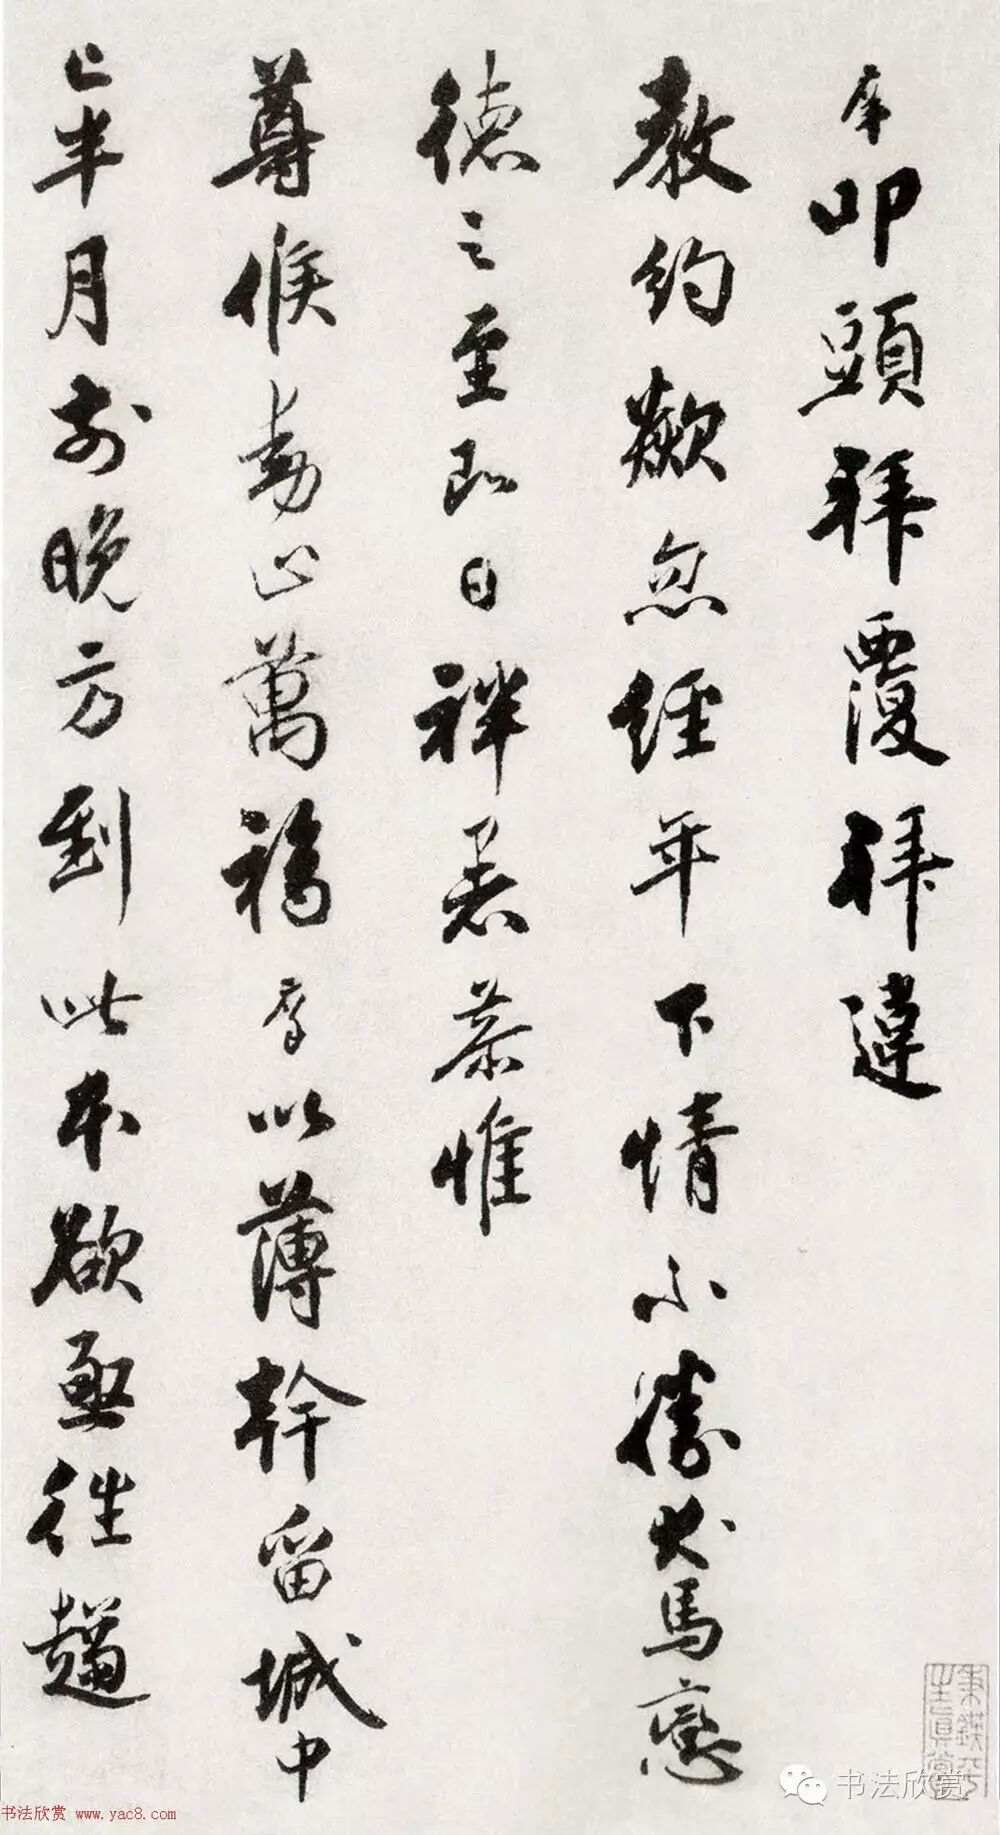 庠叩頭拜覆拜違
教約欻忽經年下情不勝犬馬戀
德之至即日袢暑恭惟
尊候動止萬福庠以薄幹留城中
已半月前晚方到此本欲亟往趨
书法欣赏
书法欣赏 www.yac8.com